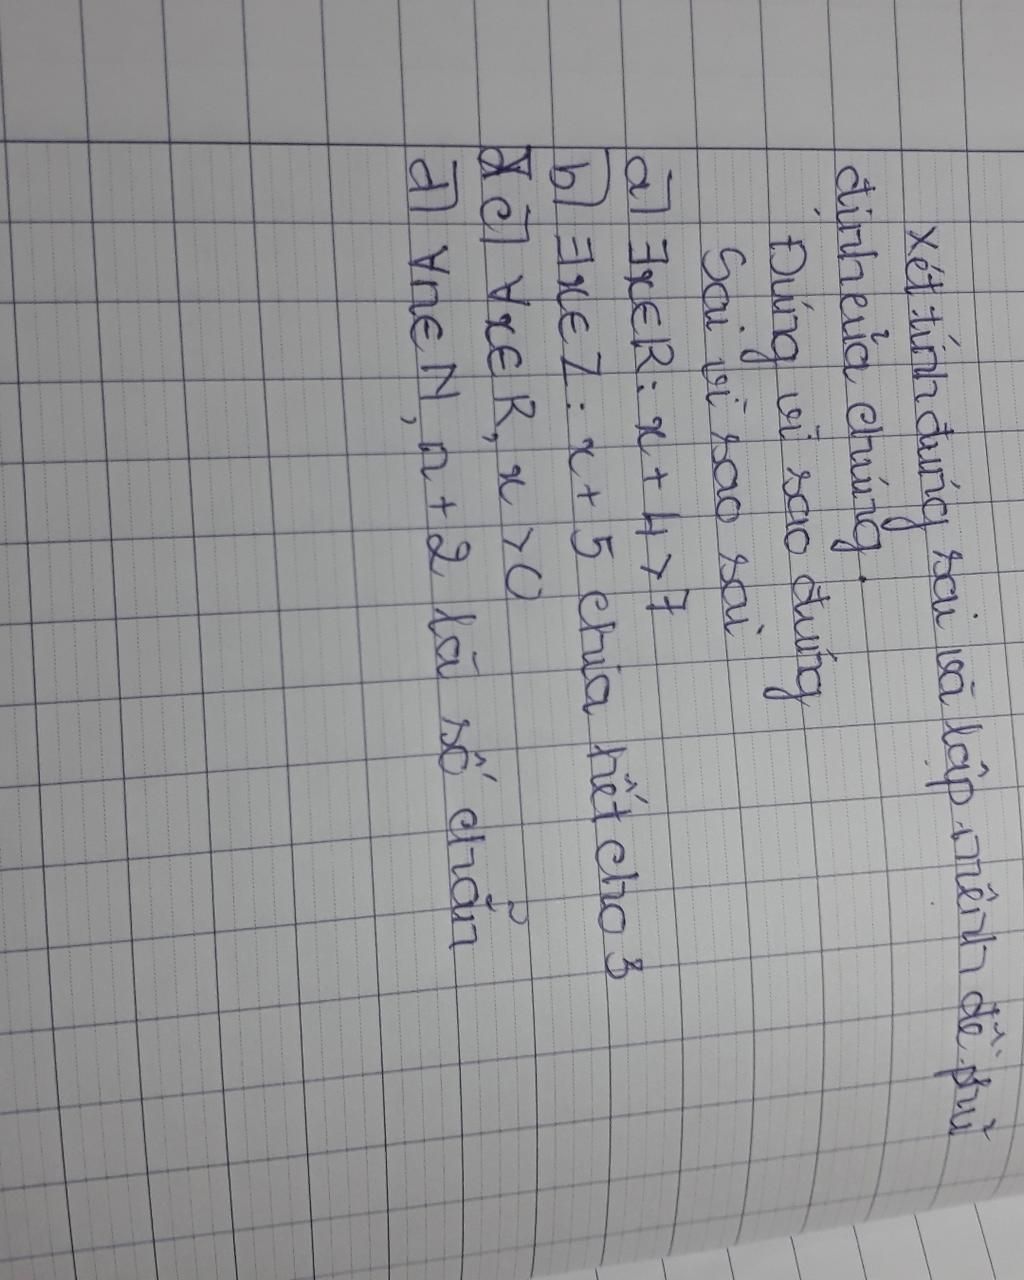 Xét tính đúng sai và lập mệnh đề phủ
định của chúng.
Đúng vì sao đúng
Sai vì sao sai
a) ∃x∈R: x + 4 > 7
b) ∃x∈Z: x + 5 chia hết cho 3
c) ∀x∈R, x > 0
d) ∀n∈N, n + 2 là số chẵn